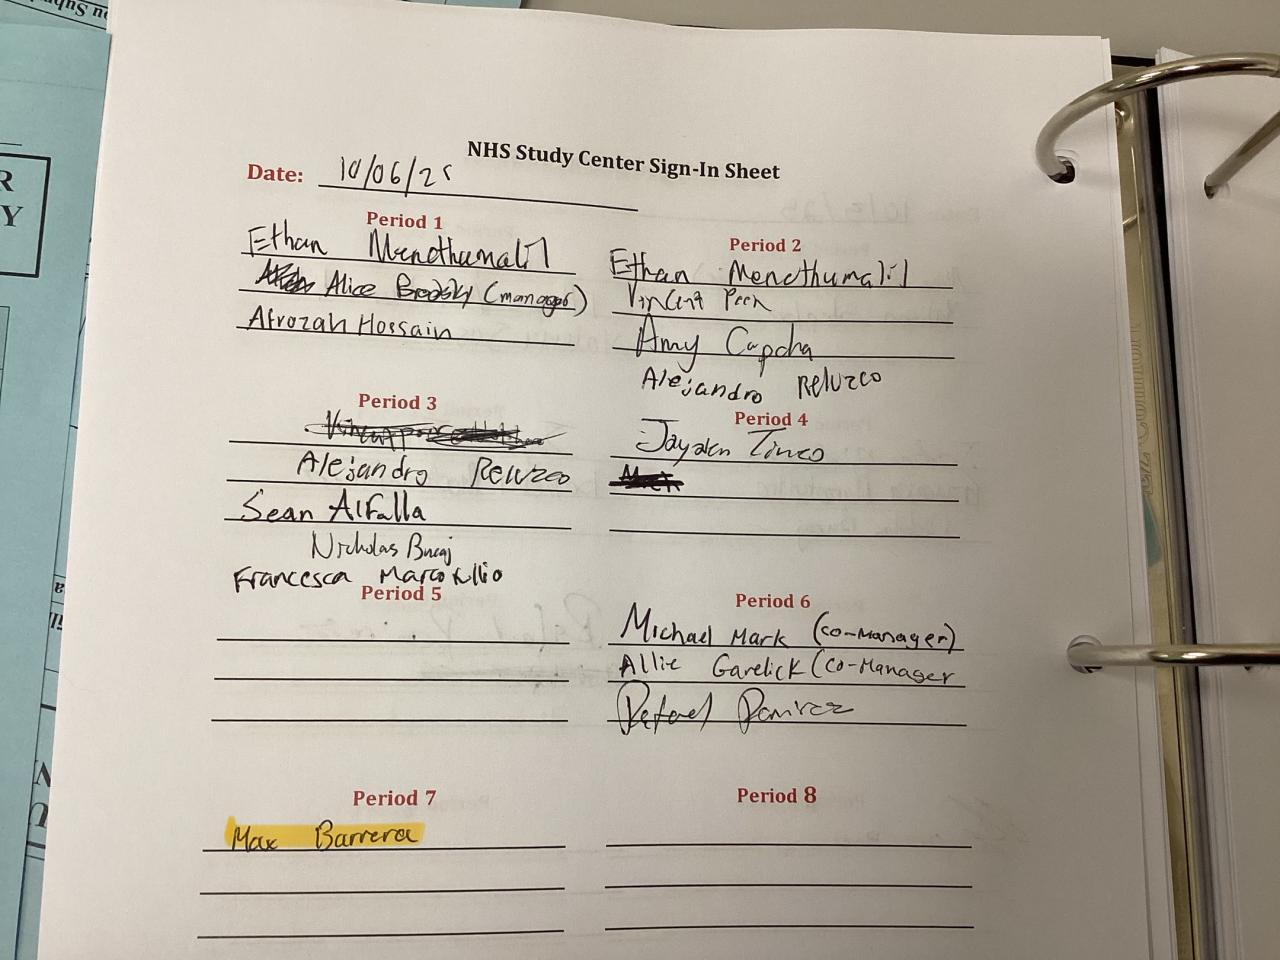 NHS Study Center Sign-In Sheet
Date: 10/06/25
Period 1
Ethan Menothumalil
Alice Brodsky (manager)
Afrozah Hossain
Period 2
Ethan Menothumalil
Vincent
Amy Capcha
Alejandro Reluzco
Period 3
Alejandro Reluzco
Sean Alfalla
Nicholas Bucaj
Francesca
Period 4
Jayden Tineo
Period 5
Period 6
Michael Mark (co-manager)
Allie Garelick (co-manager
Rafael Ramirez
Period 7
Max Barrera
Period 8